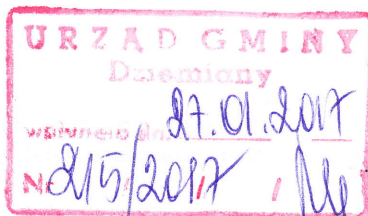 URZĄD GMINY
Dziemiany
wpłynęło dn. 27.01.2017
Nr 215/2017